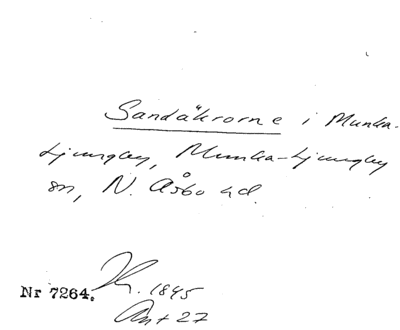 Sandåkrorne i Munka-
Ljungby, Munka-Ljungby
sn, N. Åsbo hd.
Kr. 1845
Nr 7264.
Ant 27